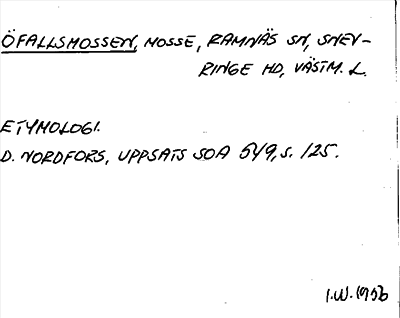 ÖFALLSMOSSEN, MOSSE, RAMNÄS SN, SNEV-
RINGE HD, VÄSTM. L.
ETYMOLOGI.
D. NORDFORS, UPPSATS SOA 549, S. 125.
I.W. 1956